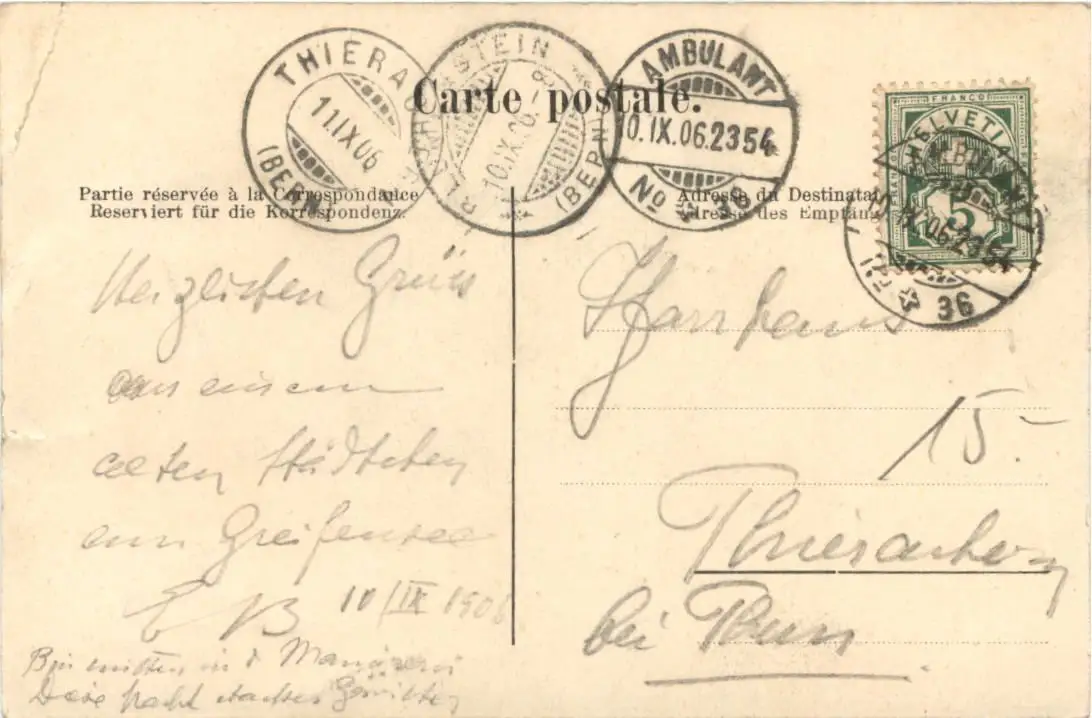 THIERAC
(BERN)
11.IX06
STEIN
10.IX.06.-8
(BERN)
AMBULANT
10.IX.06.2354
No
Carte postale.
FRANCO
HELVETIA
5
10.IX.06.2354
36
Partie réservée à la Correspondance
Reserviert für die Korrespondenz.
Adresse du Destinatai
Adresse des Empfäng
Herzlichen Grüss
aus einem
alten Städtchen
am Greifensee
EB 10/IX 1906
Bin mitten in d. Manövern
Diese Nacht starkes Gewitter
Pfarrhaus
15.-
Thierachern
bei Thun